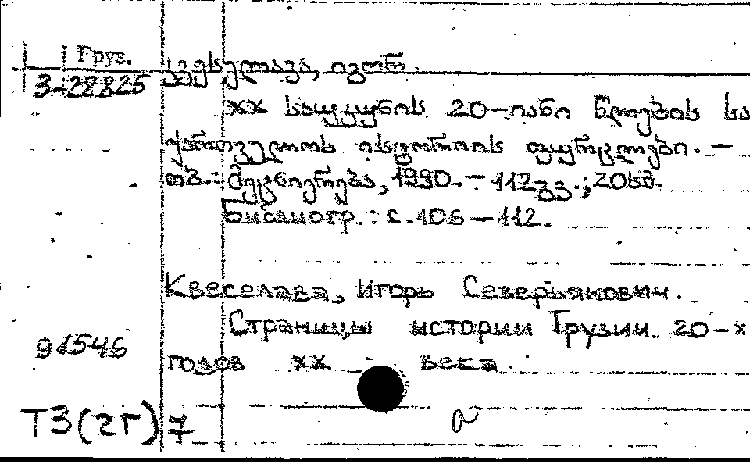 Груз.
კვესელავა, იგორ.
3-28825
XX საუკუნის 20-იანი წლების სა
ქართველოს ისტორიის ფურცლები. —
თბ.: მეცნიერება, 1990. — 112გვ.; 20სმ.
Библиогр.: с. 106 — 112.
Квеселава, Игорь Северьянович.
Страницы истории Грузии 20-х
91546
годов XX века.
Т3(2Г)7
a